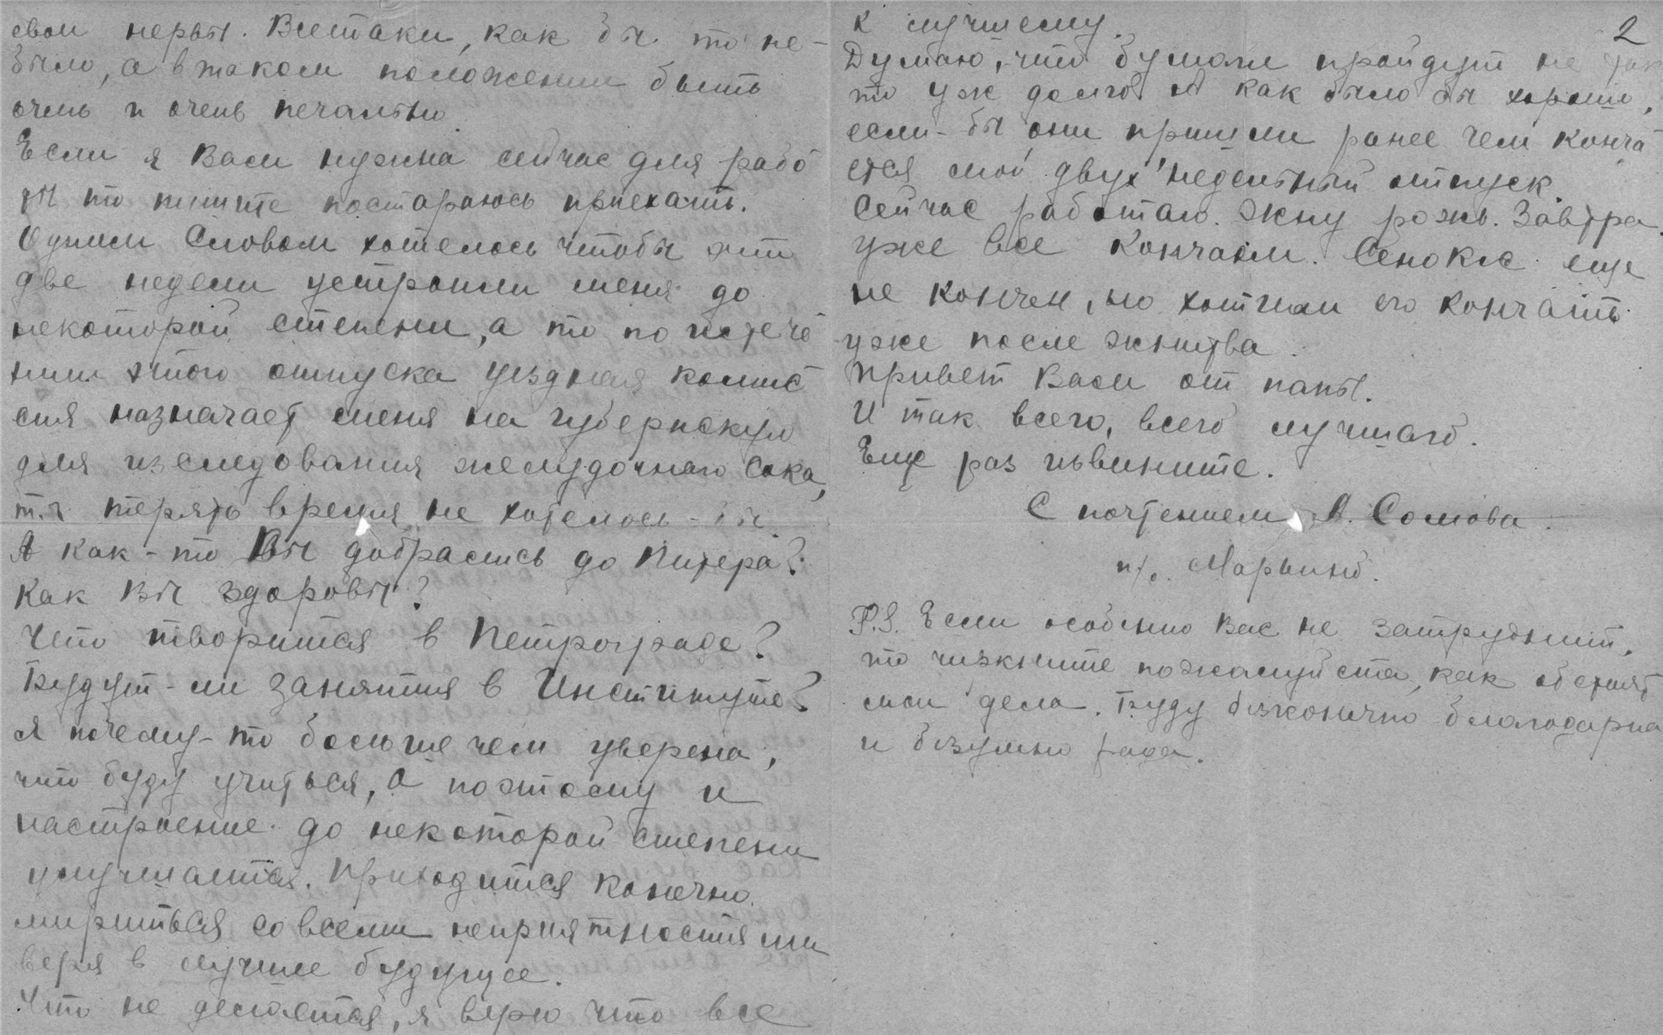 свои нервы. Всетаки, как бы то не-
было, а в таком положении быть
очень и очень печально.
Если я Вам нужна сейчас для рабо
ты то пишите постараюсь приехать.
Одним словом хотелось чтобы эти
две недели устроили меня до
некоторой степени, а то по истече
нии этого отпуска уездная комис
сия назначает меня на губернскую
для изследования желудочного сока,
т.ч терять время не хотелось-бы
А как-то Вы добрались до Питера?
Как Вы здоровы?
Что творится в Петрограде?
Будут-ли занятия в Институте?
Я почему-то больше чем уверена,
что буду учиться, а поэтому и
настроение до некоторой степени
улучшается. Приходится конечно
мириться со всеми неприятностями
веря в лучшее будущее.
Что не делается, я верю что все
2
к лучшему.
Думаю, что бумаги пройдут не так
то уж долго. А как было бы хорошо,
если-бы они пришли ранее чем конча
ется мой двух недельный отпуск.
Сейчас работаю. Жну рожь. Завтра
уже все кончаем. Сенокос еще
не кончен, но хотим его кончать
уже после жнитва.
Привет Вам от папы.
И так всего, всего лучшаго.
Еще раз извините.
С почтением А. Сомова.
Марьино.
P.S. Если особенно Вас не затруднит,
то чиркните пожалуйста, как обстоят
мои дела. Буду безконечно благодарна
и безумно рада.